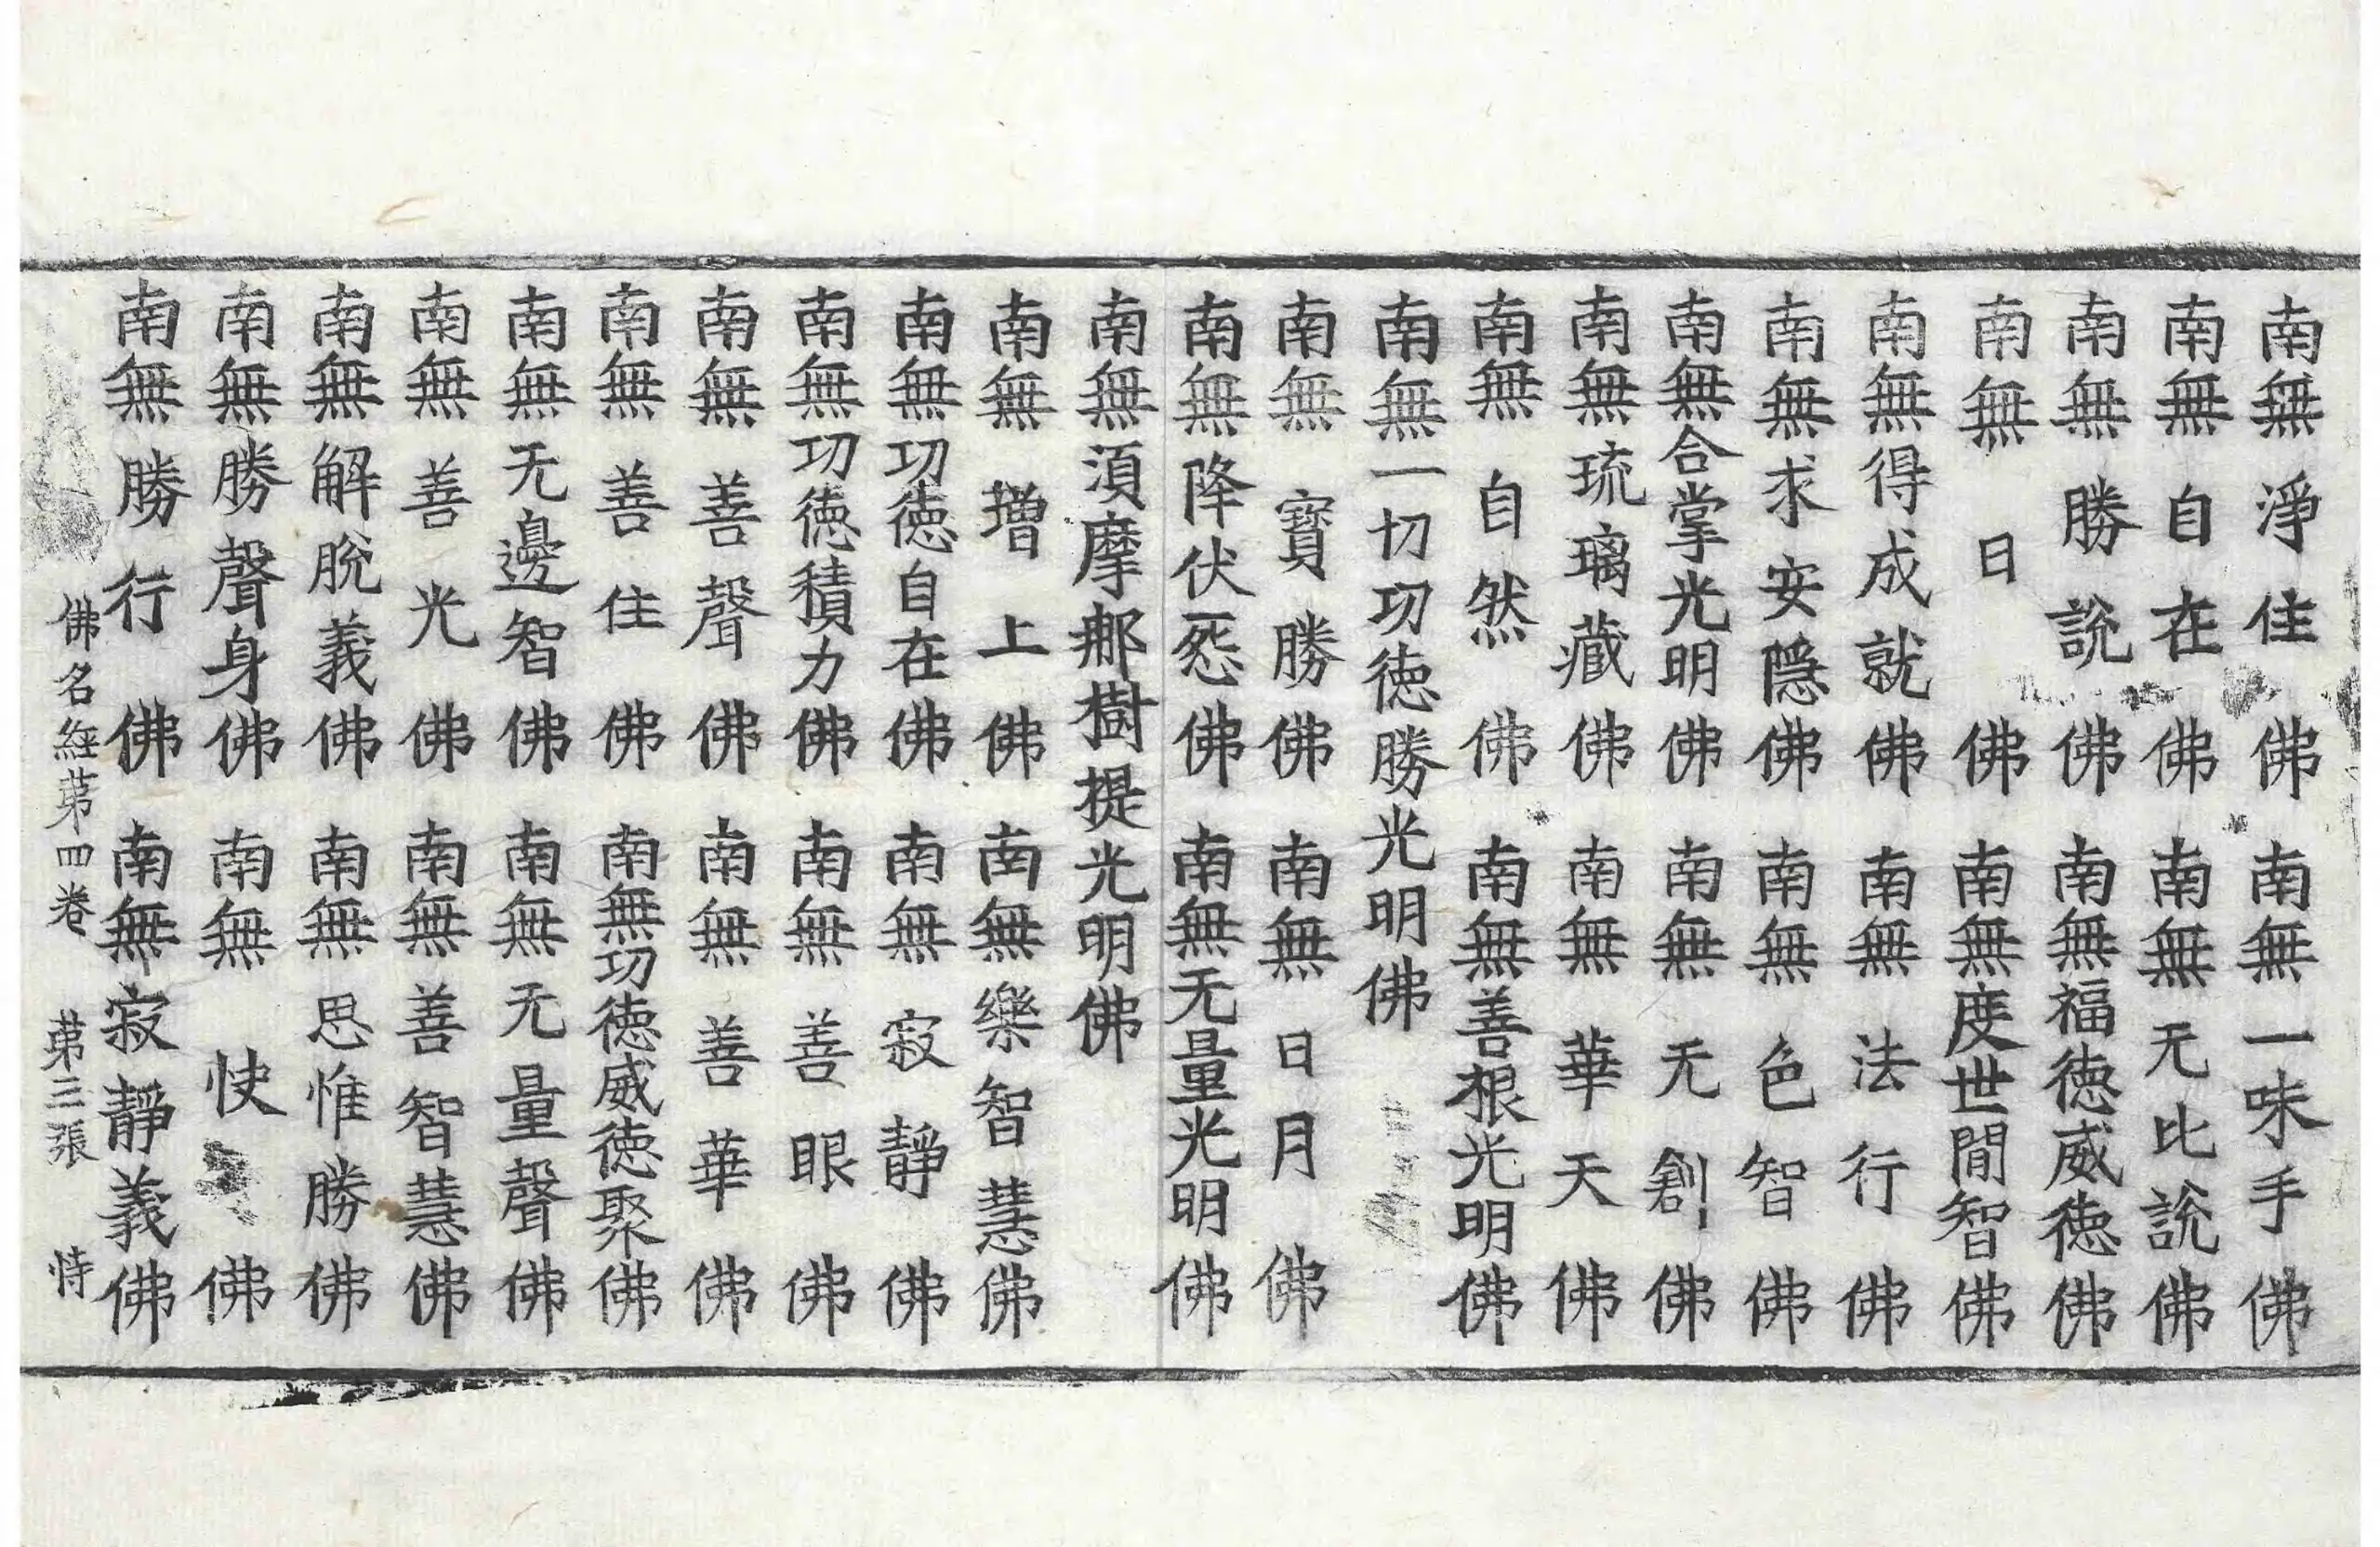 南無淨住佛南無一味手佛
南無自在佛南無无比說佛
南無勝說佛南無福德威德佛
南無日佛南無度世間智佛
南無得成就佛南無法行佛
南無求安隱佛南無色智佛
南無合掌光明佛南無无創佛
南無琉璃藏佛南無華天佛
南無自然佛南無善根光明佛
南無一切功德勝光明佛
南無寶勝佛南無日月佛
南無降伏怨佛南無无量光明佛
南無須摩那樹提光明佛
南無增上佛南無樂智慧佛
南無功德自在佛南無寂靜佛
南無功德積力佛南無善眼佛
南無善聲佛南無善華佛
南無善住佛南無功德威德聚佛
南無无邊智佛南無无量聲佛
南無善光佛南無善智慧佛
南無解脫義佛南無思惟勝佛
南無勝聲身佛南無快佛
南無勝行佛南無寂靜義佛
佛名經第四卷 第三張 恃